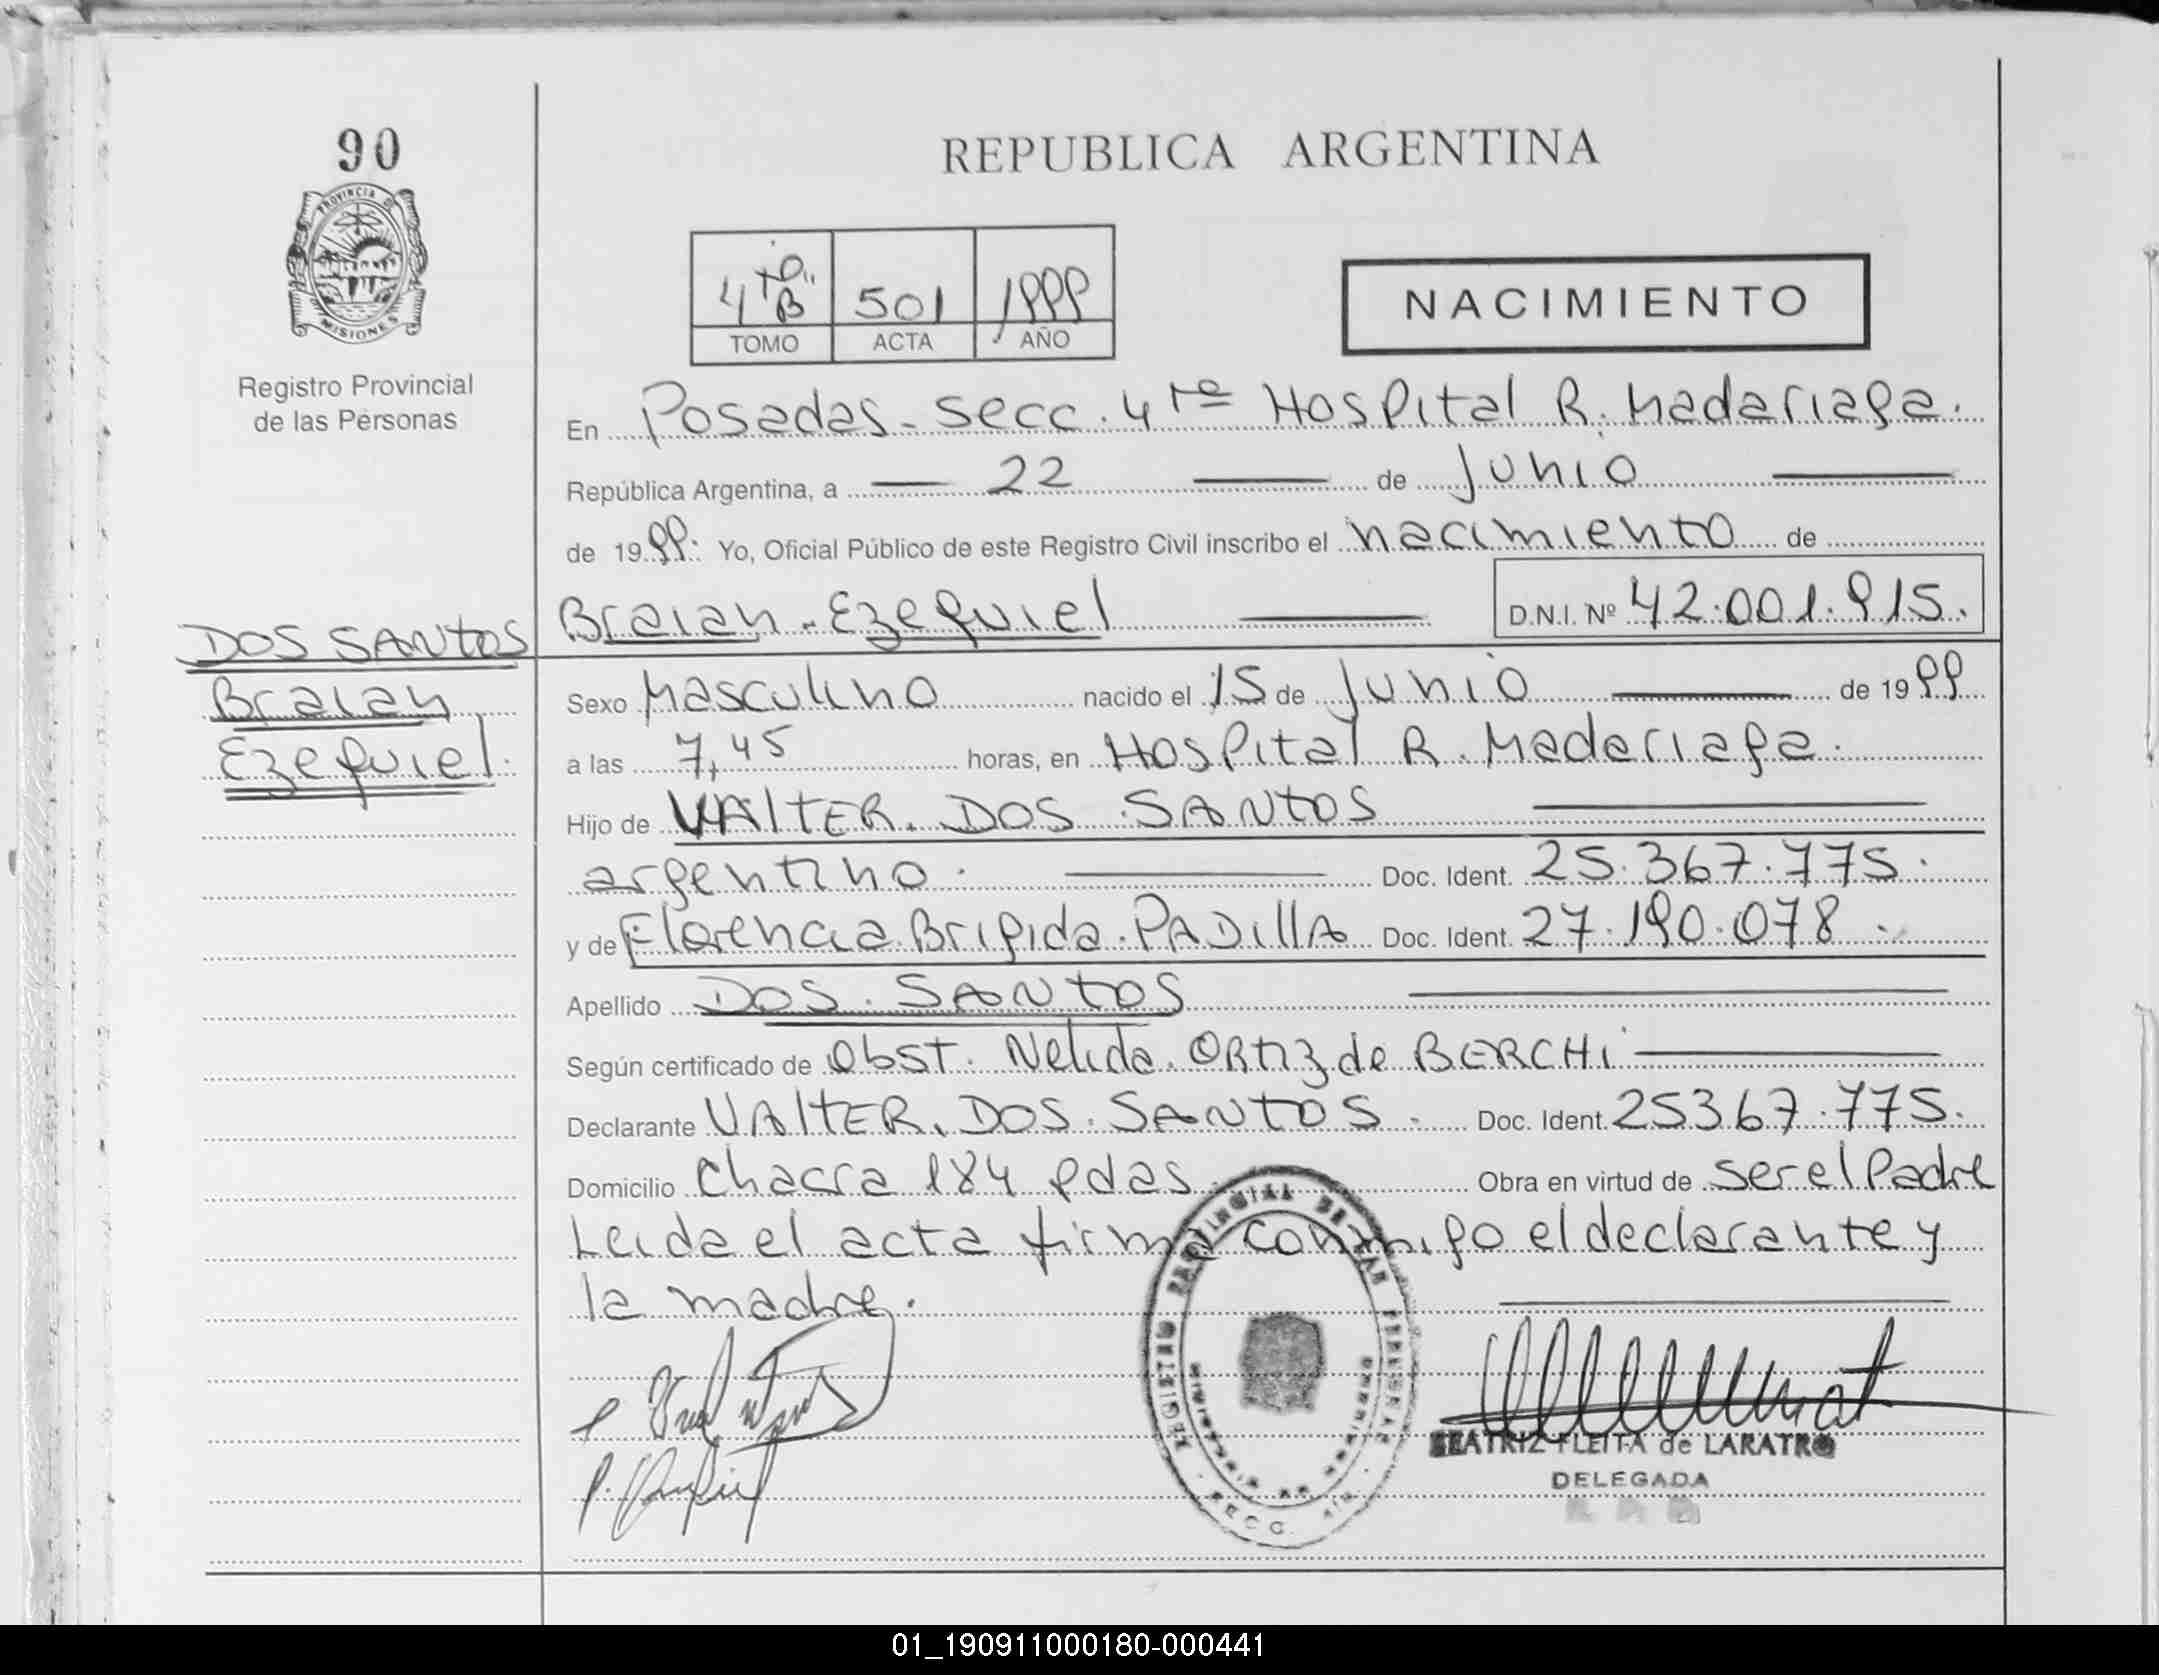 90
PROVINCIA DE
MISIONES
Registro Provincial
de las Personas
REPUBLICA ARGENTINA
4to "B" 501 1999
TOMO ACTA AÑO
NACIMIENTO
En Posadas - Secc. 4ta Hospital R. Madariaga.
República Argentina, a — 22 — de Junio —
de 1999. Yo, Oficial Público de este Registro Civil inscribo el nacimiento de
Braian - Ezequiel — D.N.I. Nº 42.001.915.
DOS SANTOS
Braian
Ezequiel.
Sexo Masculino nacido el 15 de Junio — de 1999
a las 7,45 horas, en Hospital R. Madariaga.
Hijo de WAlTER. DOS SANtOS —
argentino. — Doc. Ident. 25.367.775.
y de Florencia Brigida. PADillA Doc. Ident. 27.190.078.
Apellido DOS. SANtOS —
Según certificado de Obst. Nelida. ORtiz de BERCHi —
Declarante WAlTER. DOS. SANTOS. Doc. Ident. 25367.775.
Domicilio Chacra 184 Pdas. Obra en virtud de ser el Padre
Leida el acta firma conmigo el declarante y
la madre. —
REGISTRO PROVINCIAL DE LAS PERSONAS
BEATRIZ FLEITA de LARATRO
DELEGADA
01_190911000180-000441